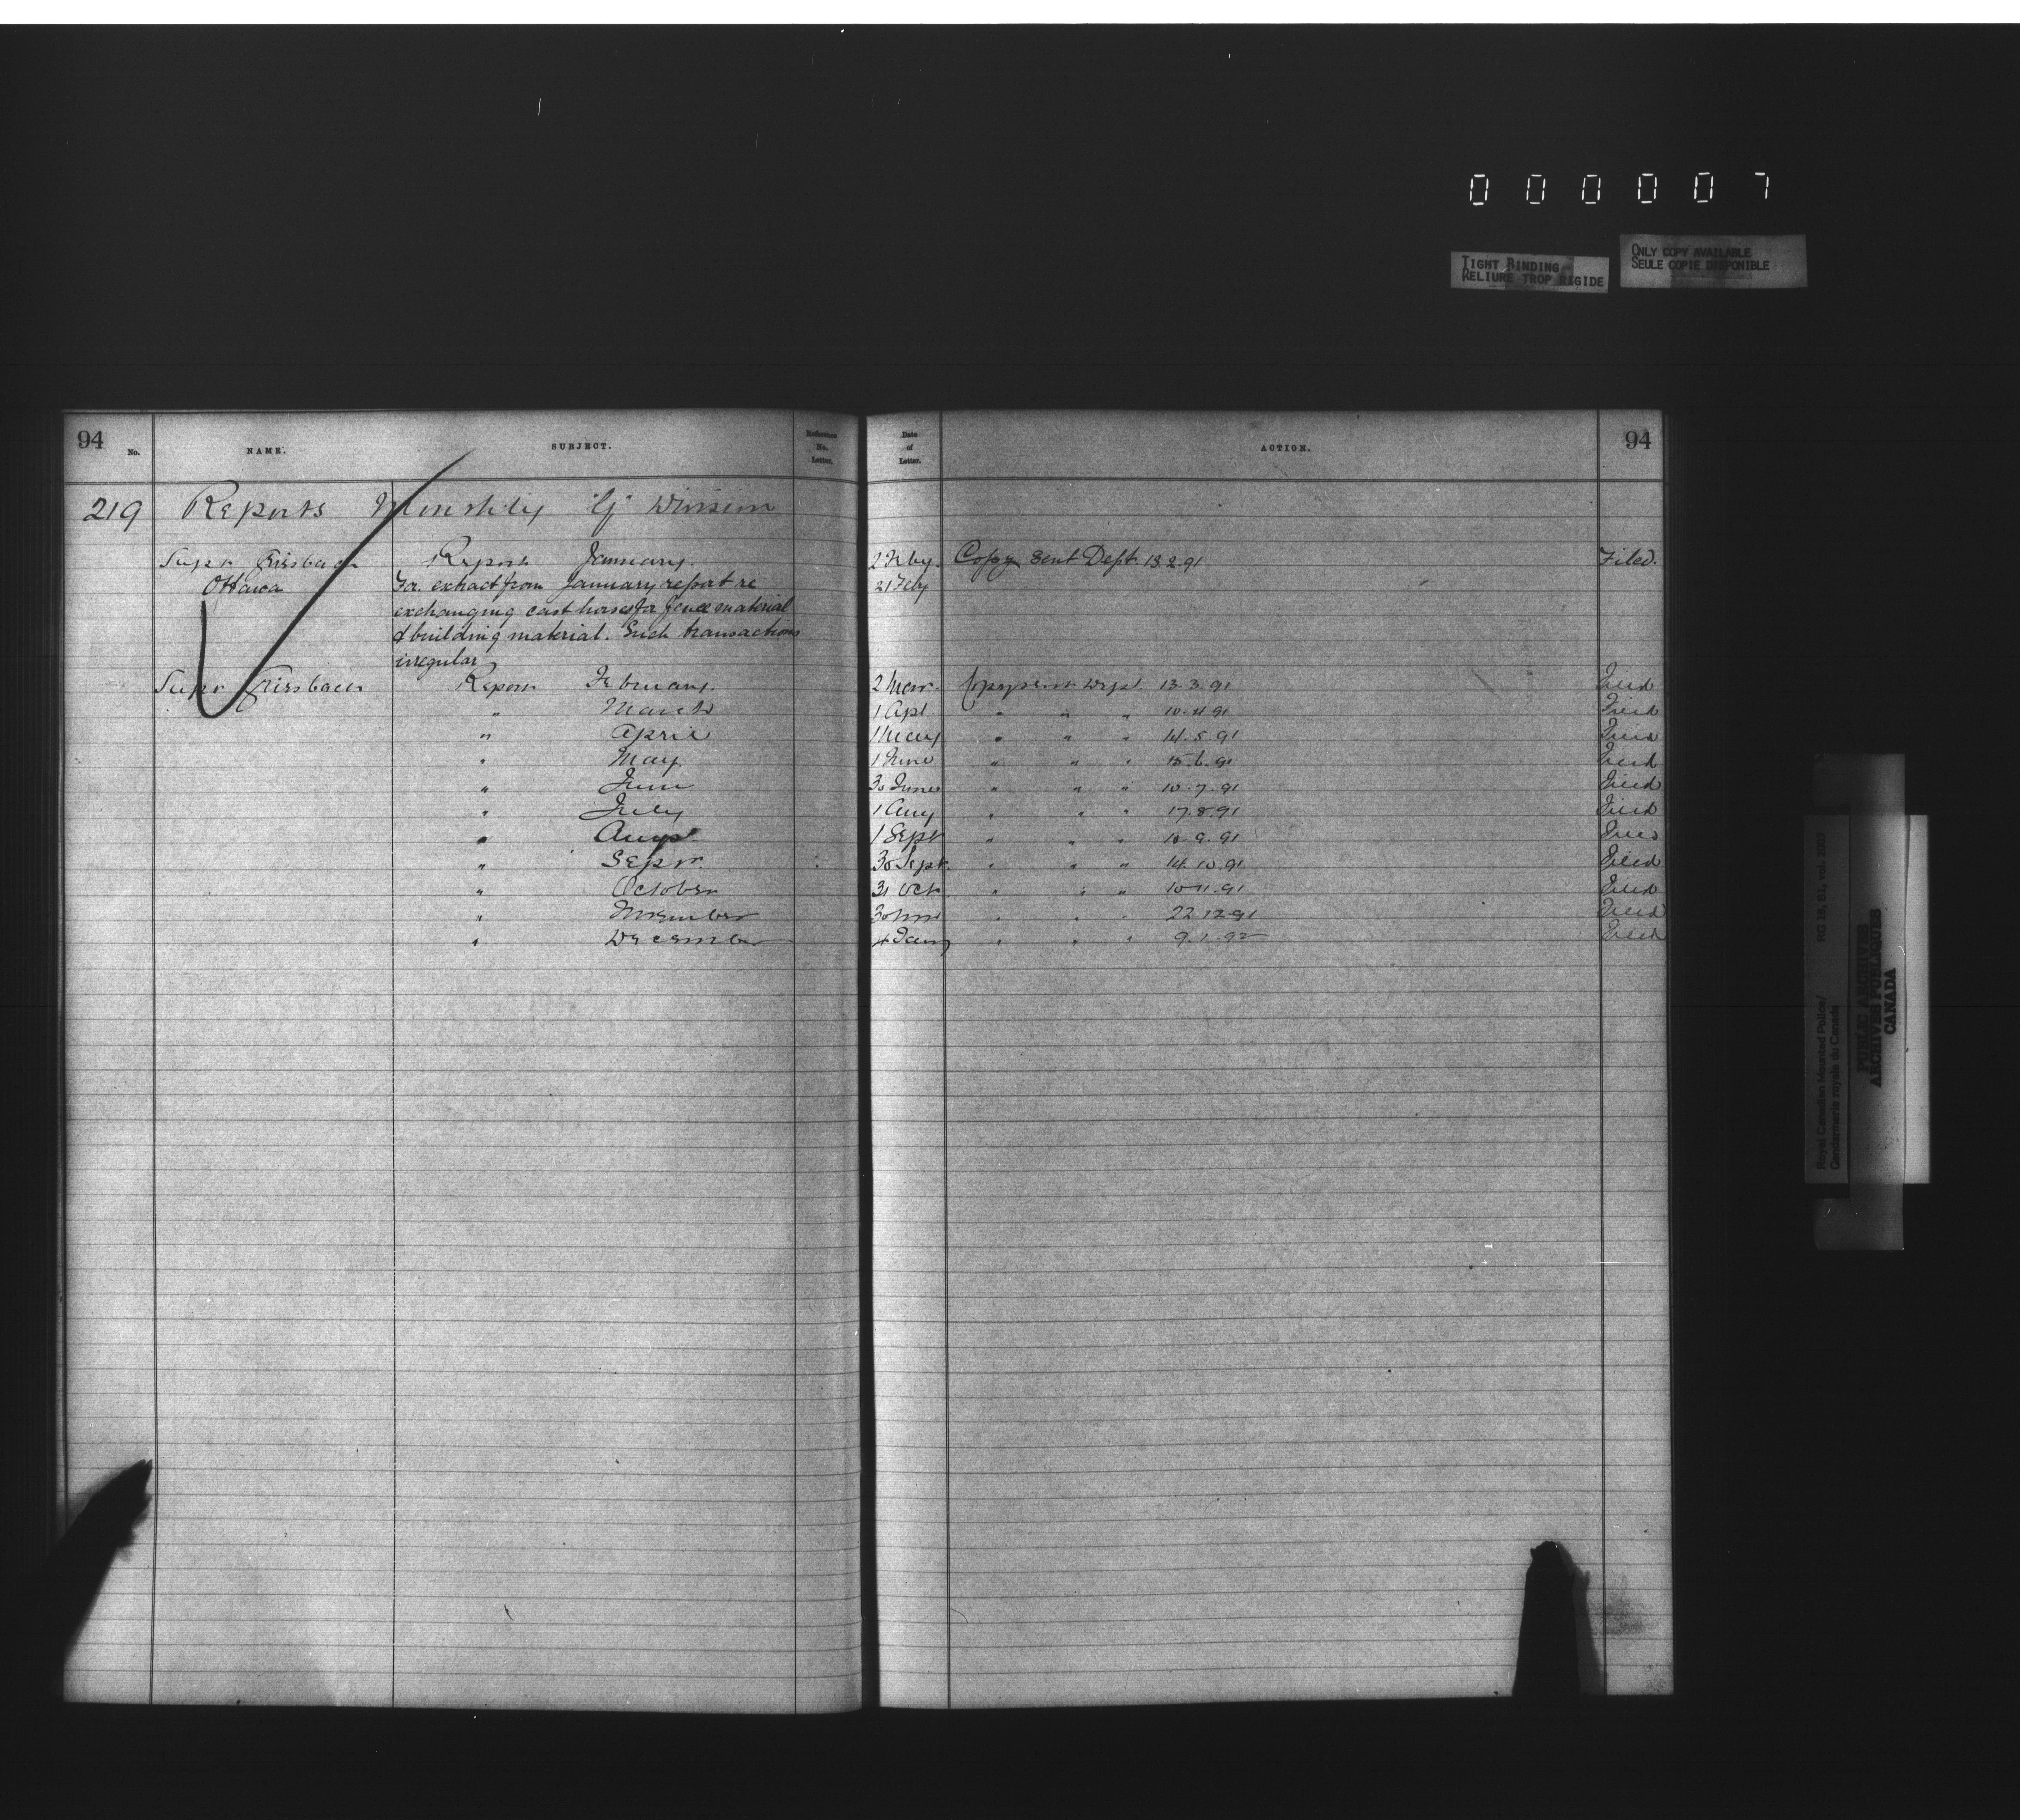 000007
TIGHT BINDING
RELIURE TROP RIGIDE
ONLY COPY AVAILABLE
SEULE COPIE DISPONIBLE
94 No. NAME. SUBJECT. Reference No. Letter. Date of Letter. ACTION. 94
219 Reports Monthly "G" Division
Supr Griesbach Report January. 2 Feby. Copy sent Dept. 13.2.91 Filed.
Ottawa For extract from January report re 21 Feby
exchanging cast horses for fence material
& building material. Such transactions
irregular
Supr Griesbach Report February. 2 Mar. Copy sent Dept. 13.3.91 Filed
" March 1 Apl " " " 10.4.91 Filed
" April 1 May " " " 14.5.91 Filed
" May. 1 June " " " 15.6.91 Filed
" June 30 June " " " 10.7.91 Filed
" July 1 Aug " " " 17.8.91 Filed
" Augst. 1 Sept " " " 10.9.91 Filed
" Sepr. 30 Sept. " " " 14.10.91 Filed
" October 31 Oct " " " 10.11.91 Filed
" November 30 Nov " " " 22.12.91 Filed
" December 4 Jany " " " 9.1.92 Filed
Royal Canadian Mounted Police/
Gendarmerie royale du Canada
RG 18, B.1, vol.
PUBLIC ARCHIVES
ARCHIVES PUBLIQUES
CANADA